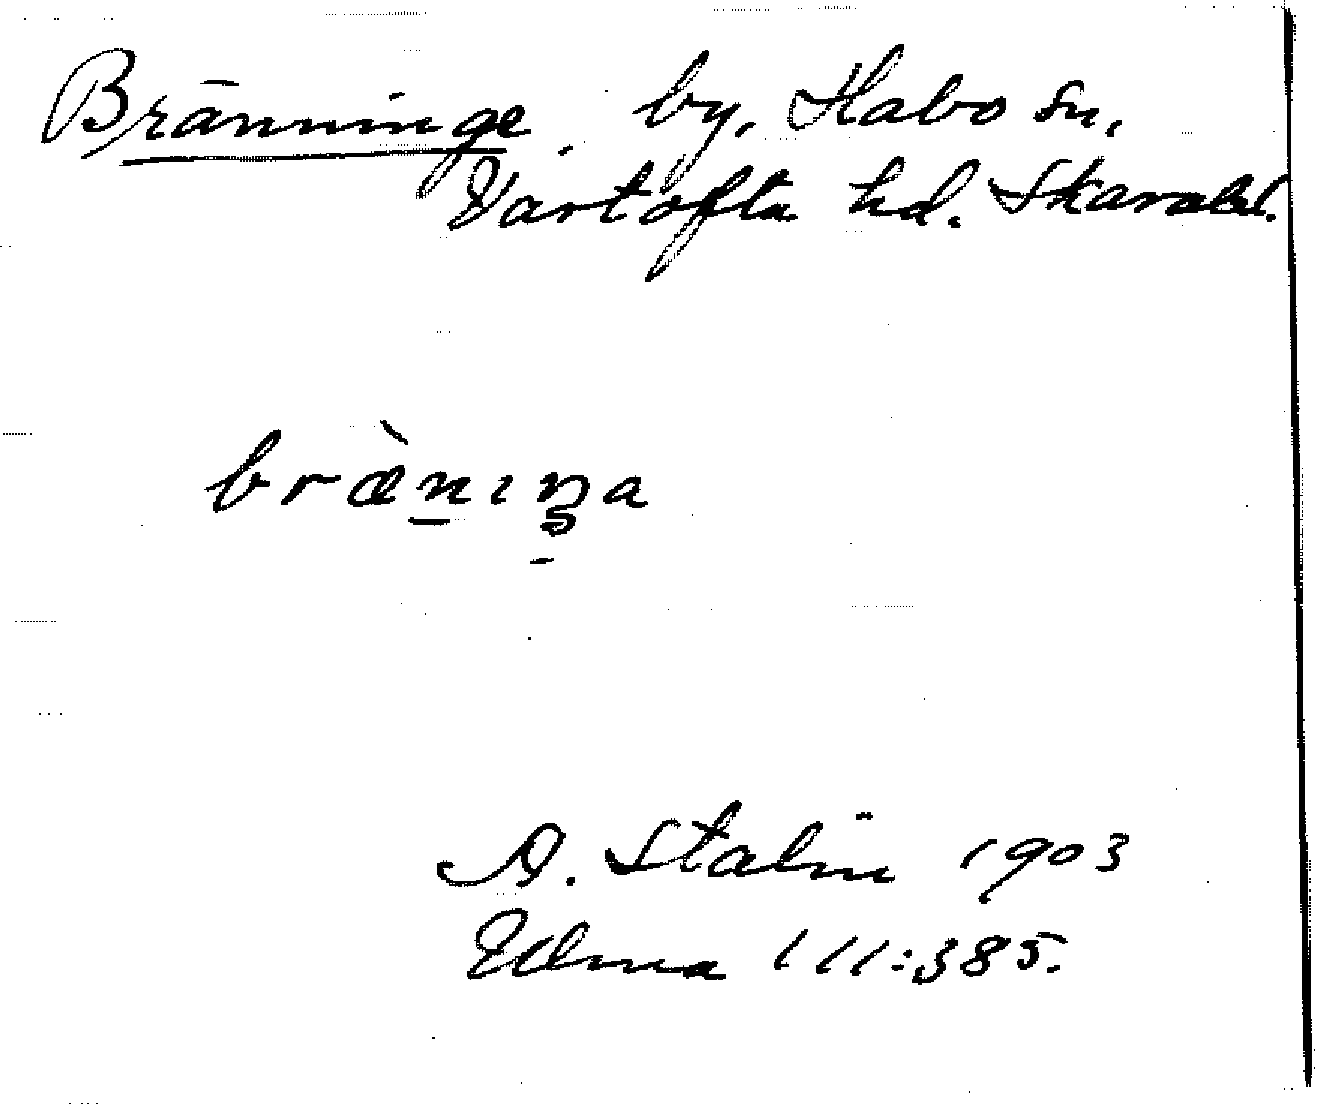 Bränninge by, Habo sn,
Vartofta hd. Skarabl.
brǣ̀n̲ıŋ̲a
A. Stalin 1903
Ulma 111:385.